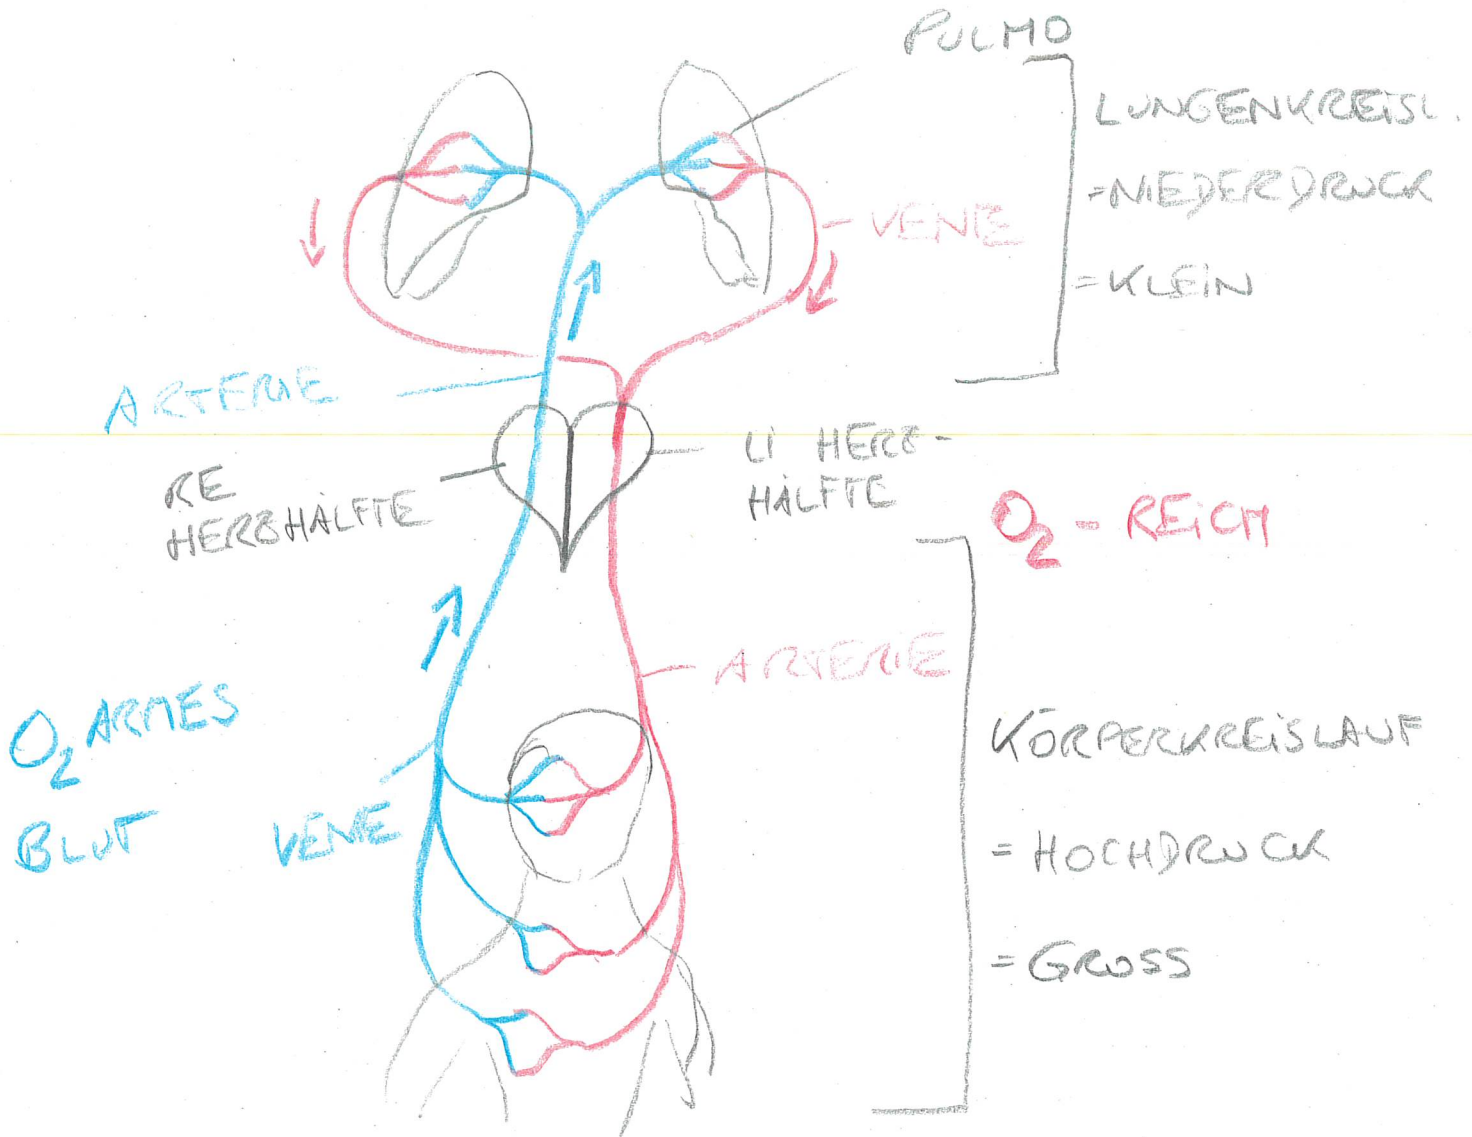 PULMO
LUNGENKREISL.
=NIEDERDRUCK
=KLEIN
- VENE
ARTERIE
RE
HERZHÄLFTE
LI HERZ-
HÄLFTE
O2 - REICH
ARTERIE
O2 ARMES
BLUT
VENE
KÖRPERKREISLAUF
= HOCHDRUCK
= GROSS